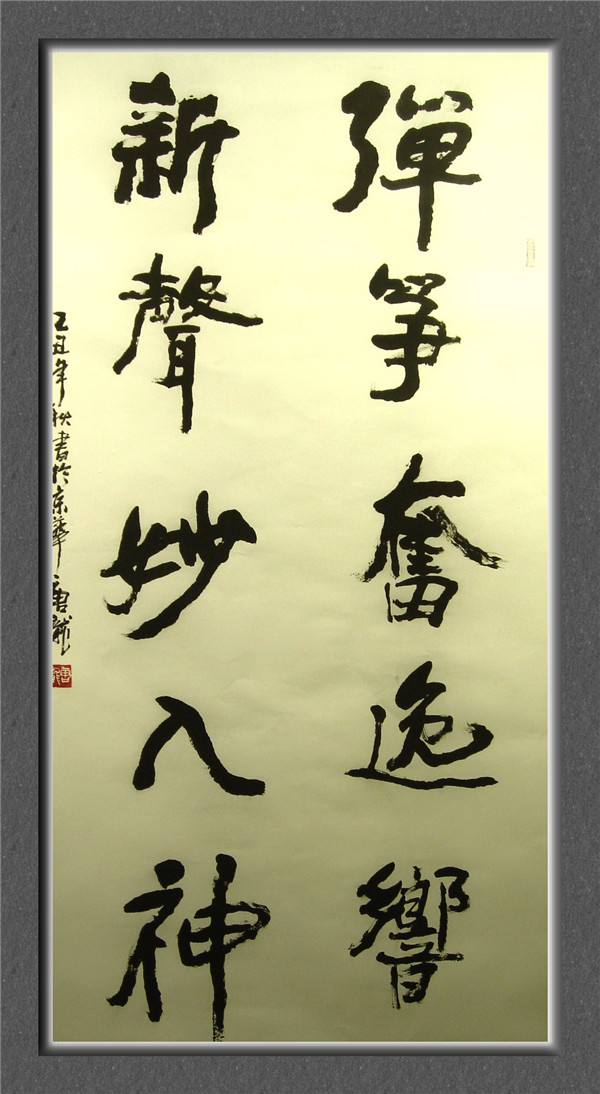 彈箏奮逸響
新聲妙入神
乙丑年秋書於京華唐龍